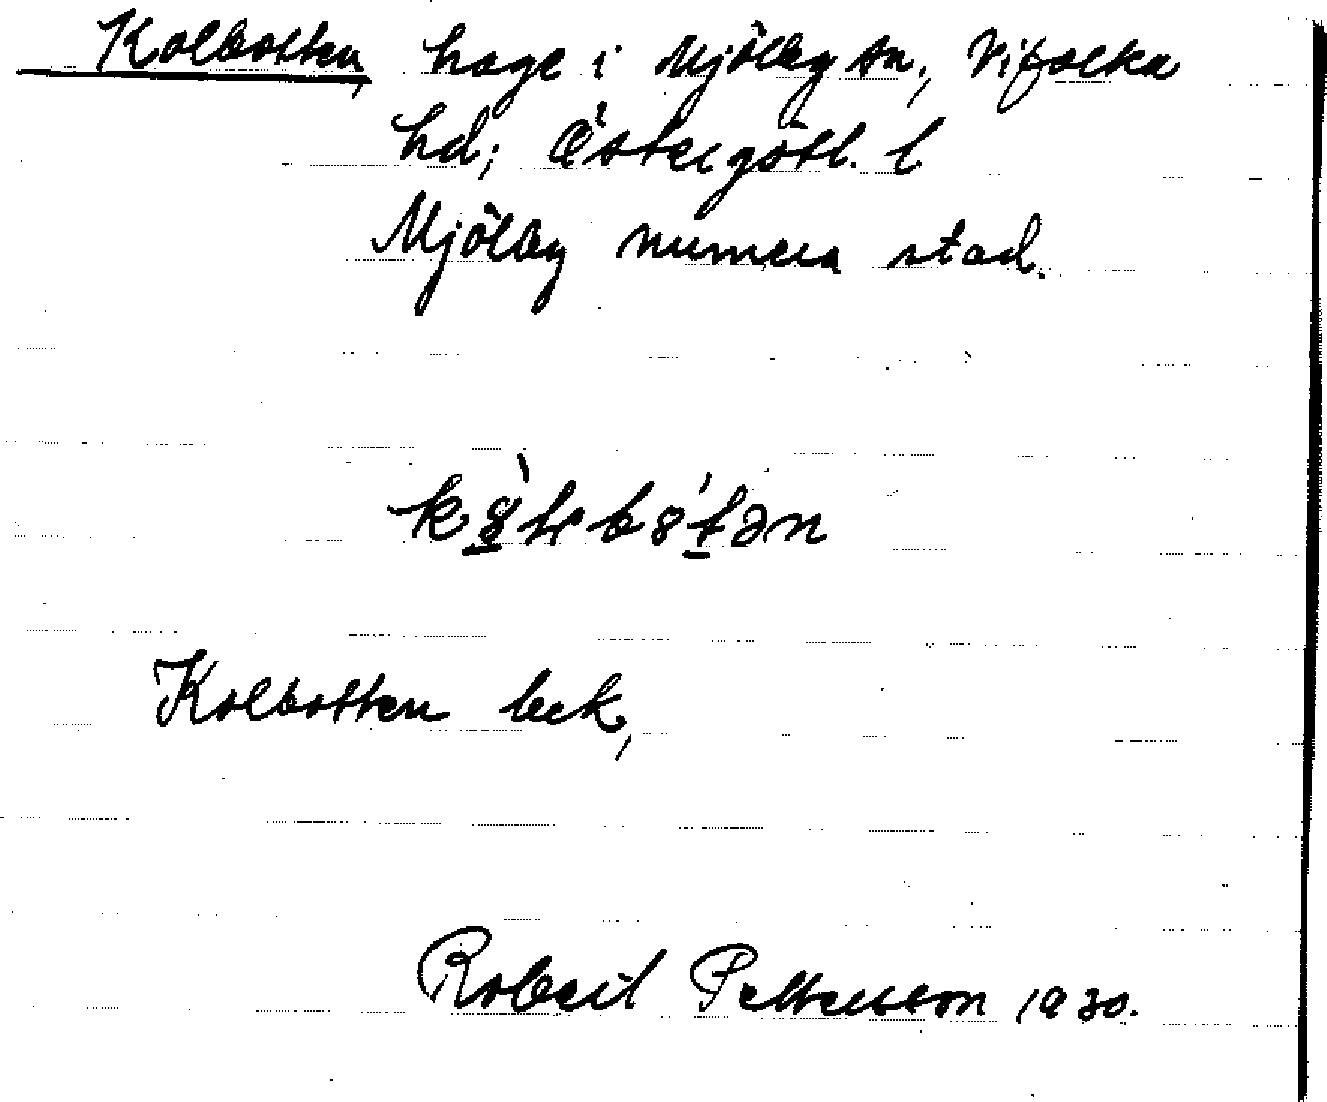 Kolbotten, hage i Mjölby sn, Vifolka
hd; Östergötl. l
Mjölby numera stad.
Kolbotten beck,
Robert Pettersson 1930.